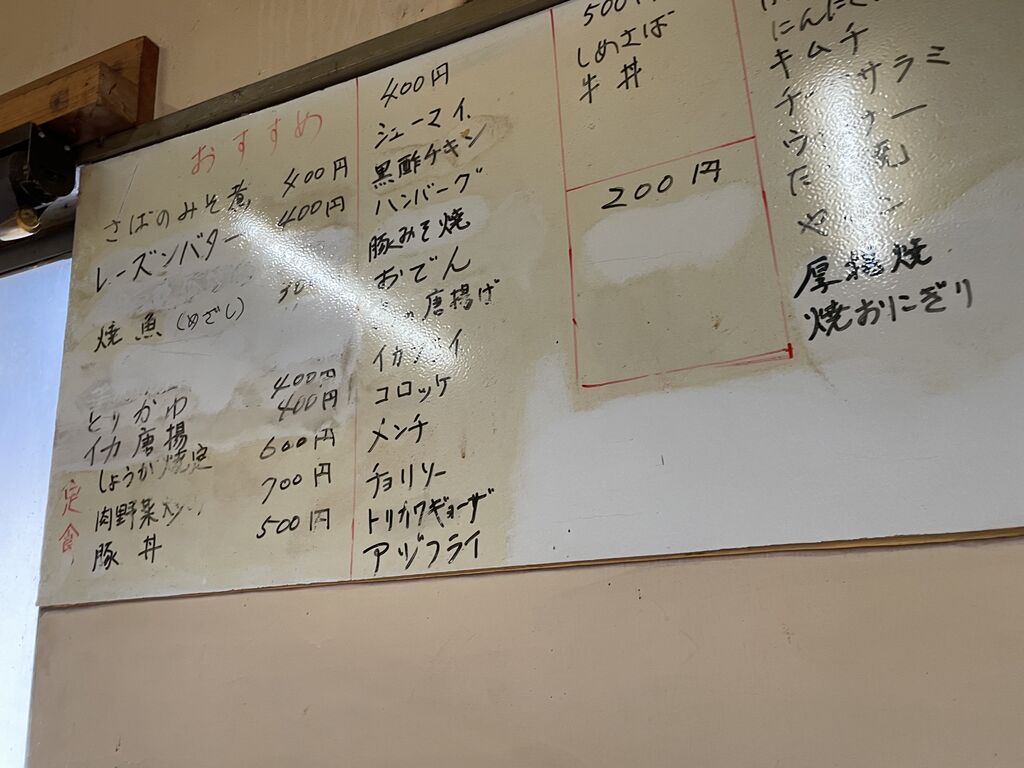 おすすめ
さばのみそ煮 400円
レーズンバター 400円
焼魚(めざし)
とりがわ 400円
イカ唐揚 400円
定食
しょうが焼定 600円
肉野菜 700円
豚丼 500円
400円
シューマイ
黒酢チキン
ハンバーグ
豚みそ焼
おでん
唐揚げ
イカ
コロッケ
メンチ
チョリソー
トリカワギョーザ
アジフライ
500円
しめさば
牛丼
200円
にんにく
キムチ
サラミ
厚揚焼
焼おにぎり